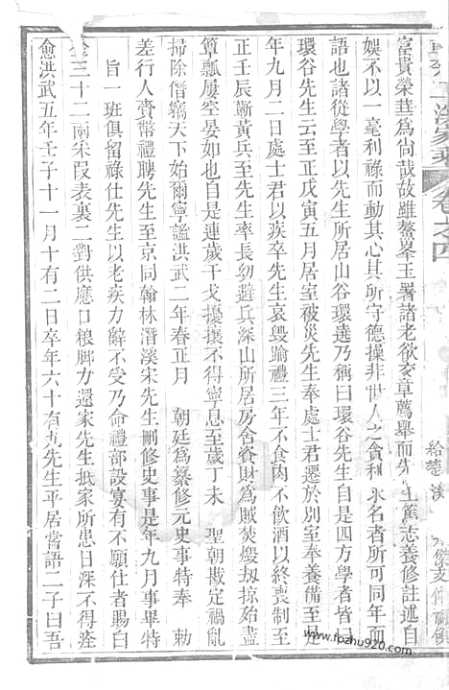 富貴榮華爲尚哉故雖鰲峯玉署諸老欲交章薦舉而先生篤志養修註述自
娛不以一毫利祿而動其心其所守德操非世人之貪利求名者所可同年而
語也諸從學者以先生所居山谷環遶乃稱曰環谷先生自是四方學者皆
環谷先生云至正戊寅五月居室被災先生奉處士君遷於別室奉養備至是
年九月二日處士君以疾卒先生哀毀踰禮三年不食肉不飲酒以終喪制至
正壬辰蘄黃兵至先生率長幼避兵深山所居房舍賫財爲賊焚燬刼掠始盡
簞瓢屢空晏如也自是連歲干戈擾攘不得寧息至歲丁未 聖朝戡定禍亂
掃除僭竊天下始爾寧謐洪武二年春正月 朝廷爲纂修元史事特奉 勅
差行人賫幣禮聘先生至京同翰林潛溪宋先生刪修史事是年九月事畢特
旨一班俱留祿仕先生以老疾力辭不受乃命禮部設宴有不願仕者賜白
金三十二兩宋叚表裏二對供應口粮脚力還家先生抵家所患日深不得痊
愈洪武五年壬子十一月十有二日卒年六十有九先生平居嘗語二子曰吾
卷之四
www.fozhu920.com